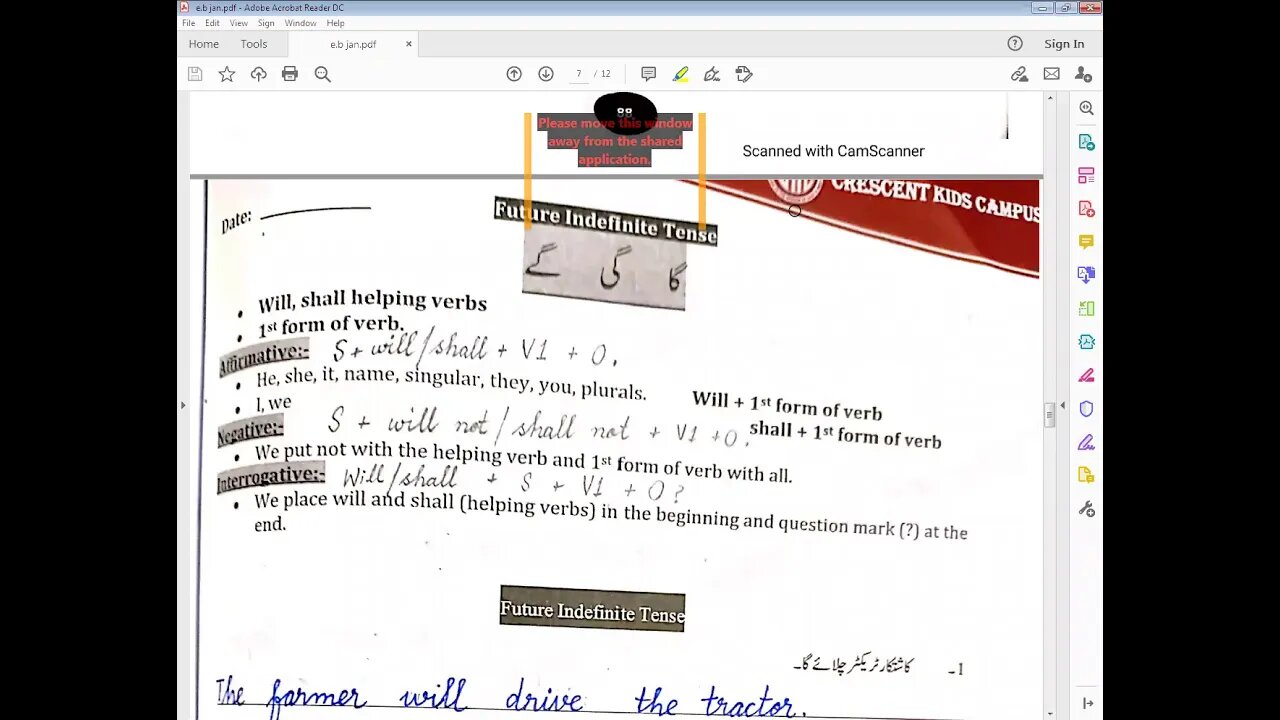 e.b jan.pdf - Adobe Acrobat Reader DC
File Edit View Sign Window Help
Home Tools e.b jan.pdf × Sign In
7 / 12
Please move this window
away from the shared
application.
Scanned with CamScanner
CRESCENT KIDS CAMPUS
Date:
Future Indefinite Tense
گا گی گے
• Will, shall helping verbs
• 1st form of verb.
Affirmative:- S + will/shall + V1 + O.
• He, she, it, name, singular, they, you, plurals. Will + 1st form of verb
• I, we shall + 1st form of verb
Negative:- S + will not / shall not + V1 + O.
• We put not with the helping verb and 1st form of verb with all.
Interrogative:- Will/shall + S + V1 + O?
• We place will and shall (helping verbs) in the beginning and question mark (?) at the
end.
Future Indefinite Tense
1۔ کاشتکار ٹریکٹر چلائے گا۔
The farmer will drive the tractor.